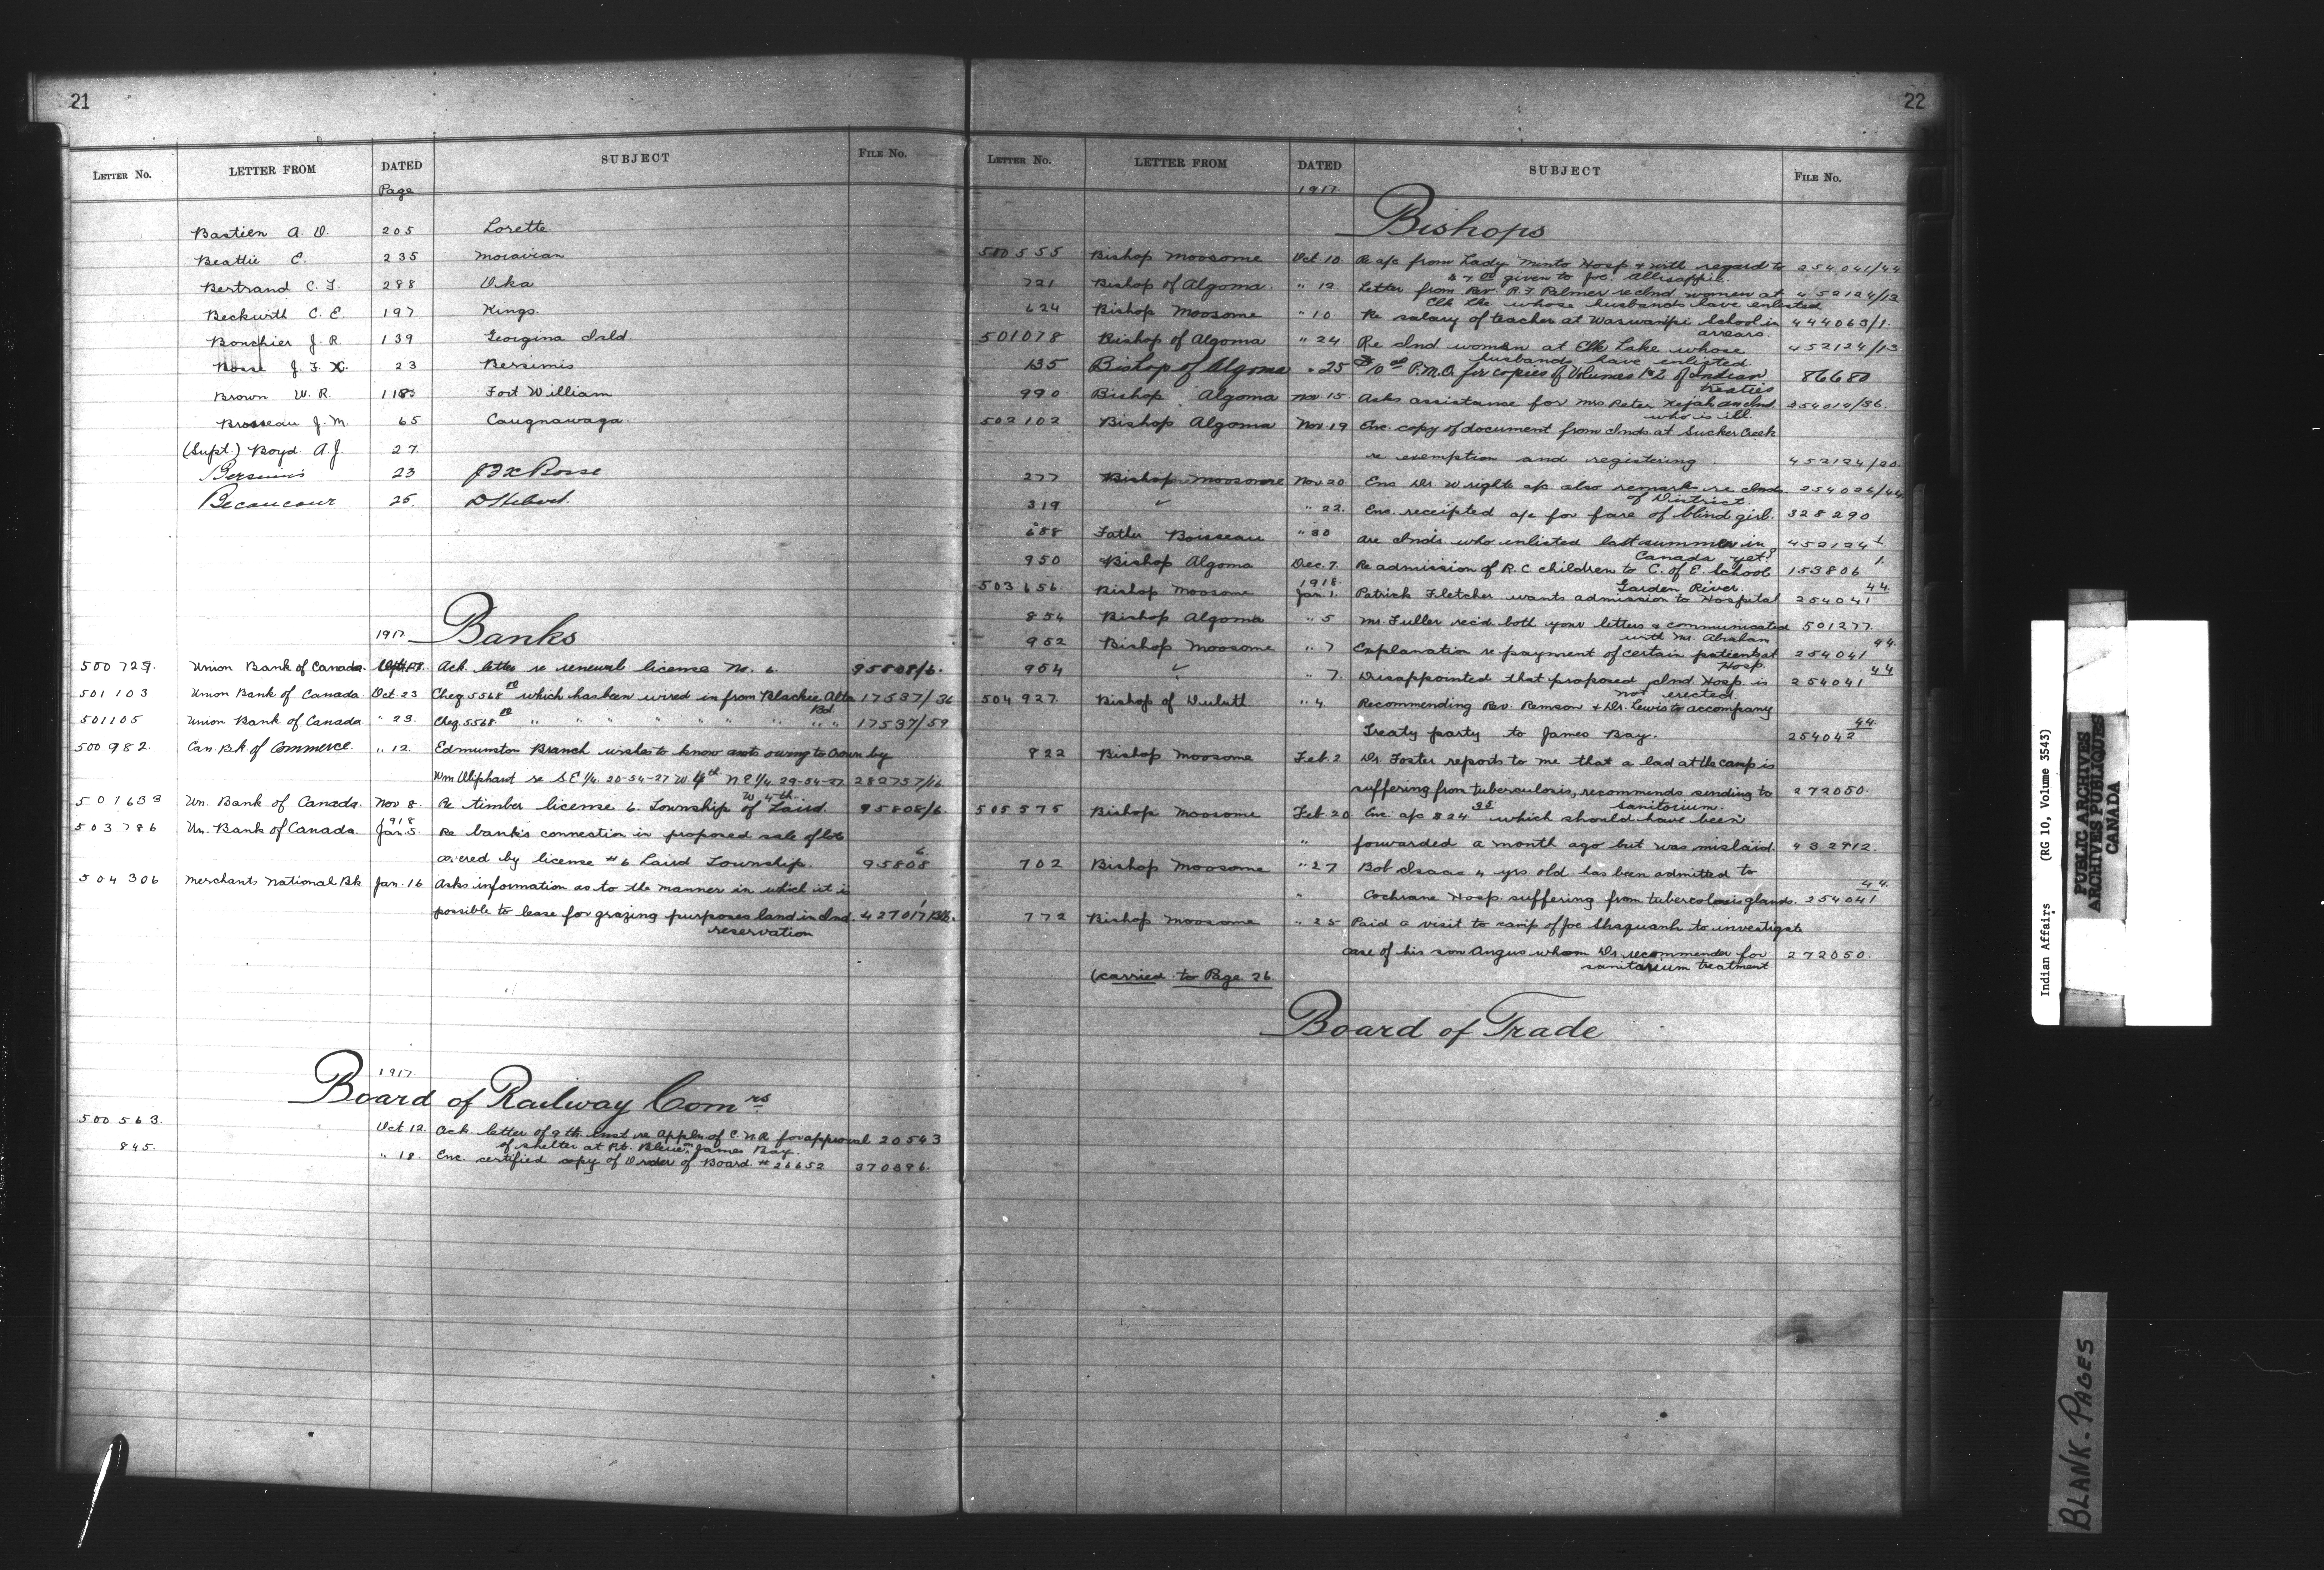 21
LETTER NO. LETTER FROM DATED SUBJECT FILE NO.
Page
Bastien A. O. 205 Lorette
Beattie C. 235 Moravian
Bertrand C. F. 288 Oka
Beckwith C. E. 197 Kings.
Bonchier J. R. 139 Georgina Isld.
J. F. X. 23 Bersimis
Brown W. R. 118 Fort William
Brosseau J. M. 65 Caugnawaga.
(Supt.) Boyd A. J. 27
Bersimis 23 J F X Bosse
Becancour 25. D Hebert.
Banks
1917
500729. Union Bank of Canada Ack. letter re renewal license No. 6. 95808/6.
501103 Union Bank of Canada Oct 23 Cheq 5568 which has been wired in from Blackie Alta 17537/36
501105 Union Bank of Canada " 23. Cheq 5568 " " " " " " " Bd. " " 17537/59
500982. Can. Bk of Commerce. " 12. Edmunston Branch wishes to know amts owing to Crown by
Wm Oliphant re S.E 1/4. 20-54-27 W. 4th N.E 1/4 29-54-27 282757/16
W 4th.
501633 Un. Bank of Canada Nov 8. Re timber license 6. Township of Laird. 95808/6.
1918
503786 Un. Bank of Canada Jan. 5. Re bank's connection in proposed sale of lots
covered by license #6 Laird Township. 95808 6.
504306 Merchants National Bk Jan. 16 Asks information as to the manner in which it is
possible to lease for grazing purposes land in Ind. 427017
reservation
1917
Board of Railway Comrs
500563. Oct 12 Ack. letter of 9th. inst re Appln of C.N.R. for approval 20543
of shelter at Pt. Bleue, James Bay.
845. " 18. Enc. certified copy of Order of Board #26652 370396.
22
LETTER NO. LETTER FROM DATED SUBJECT FILE NO.
1917.
Bishops
500555 Bishop Moosome Oct. 10 Re a/c from Lady Minto Hosp & with regard to 254041/44
$7.00 given to Joe. Allisappie.
721 Bishop of Algoma. " 12. Letter from Rev. R. F. Palmer re Ind women at 452124/13
Elk Lke whose husbands have enlisted
624 Bishop Moosome " 10 Re salary of teacher at Waswanipi School in 444063/1.
arrears.
501078 Bishop of Algoma " 24 Re Ind. women at Elk Lake whose 452124/13
husbands have enlisted
135 Bishop of Algoma " 25 P.M.O. for copies of Volumes 1 & 2 of Indian 86680
treaties
990 Bishop Algoma Nov. 15. Asks assistance for Mrs Peter Kejah an Ind. 254014/36.
who is ill.
502102 Bishop Algoma Nov. 19 Enc. copy of document from Inds at Sucker Creek
re exemption and registering. 452124/20.
277 Bishop Moosome Nov. 20 Enc Dr. Wright a/c also remark re Inds. 254026/44
of District.
319 ✓ " 22. Enc. receipted a/c for fare of blind girl. 328290
688 Father Boisseau " 30 Are Inds. who enlisted last summer in 452124 1
Canada yet?
950 Bishop Algoma Dec. 7. Re admission of R.C children to C. of E. School 153806 1.
Garden River.
1918.
503656 Bishop Moosome Jan. 1. Patrick Fletcher wants admission to Hospital 254041 44.
854 Bishop Algoma " 5 Mr. Fuller rec'd both your letters & communicated 501277.
with Mr. Abraham
952 Bishop Moosome " 7 Explanation re payment of certain patients at 254041 44.
Hosp.
954 ✓ " 7 Disappointed that proposed Ind. Hosp. is 254041 44
not erected.
504927. Bishop of Duluth " 4 Recommending Rev. Remson & Dr. Lewis to accompany
Treaty party to James Bay. 254042 44.
822 Bishop Moosome Feb. 2 Dr. Foster reports to me that a lad at the camp is
suffering from tuberculosis, recommends sending to 272050.
sanitorium.
505575 Bishop Moosome Feb. 20 Enc. a/c $24.35 which should have been
" forwarded a month ago but was mislaid. 432712.
702 Bishop Moosome " 27 Bob Isaac 4 yrs old has been admitted to
" Cochrane Hosp. suffering from tubercolosis glands. 254041 44.
772 Bishop Moosome " 25 Paid a visit to camp of Joe Shaquanh to investigate
case of his son Angus whom Dr. recommender for 272050.
sanitarium treatment
(carried to Page 26
Board of Trade
Indian Affairs (RG 10, Volume 3543)
PUBLIC ARCHIVES
ARCHIVES PUBLIQUES
CANADA
BLANK-PAGES